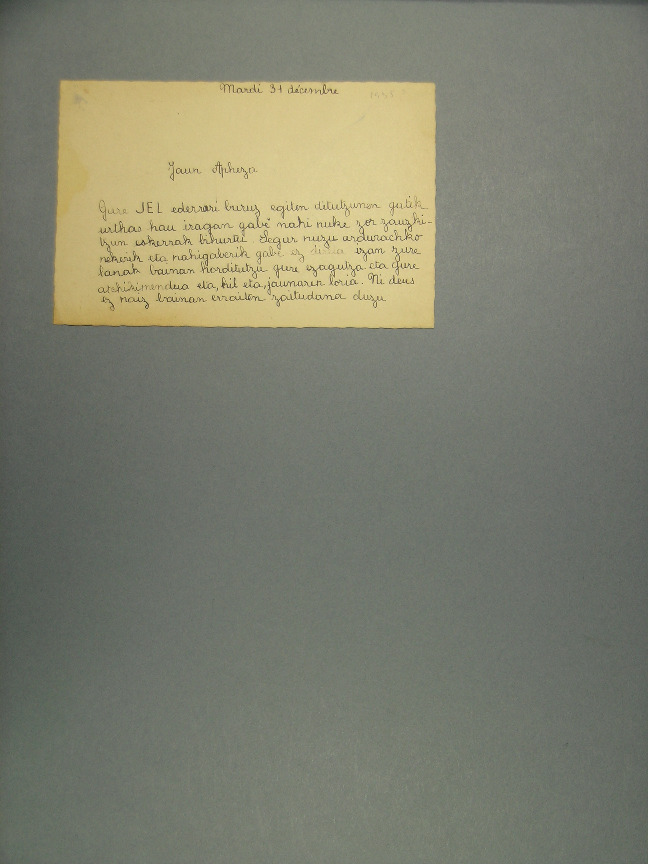 Mardi 31 décembre 1935
Jaun Apheza
Gure JEL ederrari buruz egiten ditutzunen gatik
urthas hau iragan gabe nahi nuke zor zauzki-
tzun eskerrak bihurtu. Segur nuzu ardurachko
nekerik eta nahigaberik gabe ez direla izan zure
lanak bainan horditutzu gure ezagutza eta gure
atchikimendua eta, hil eta, jaunaren loria. Ni deus
ez naiz bainan erraiten zaitudana duzu